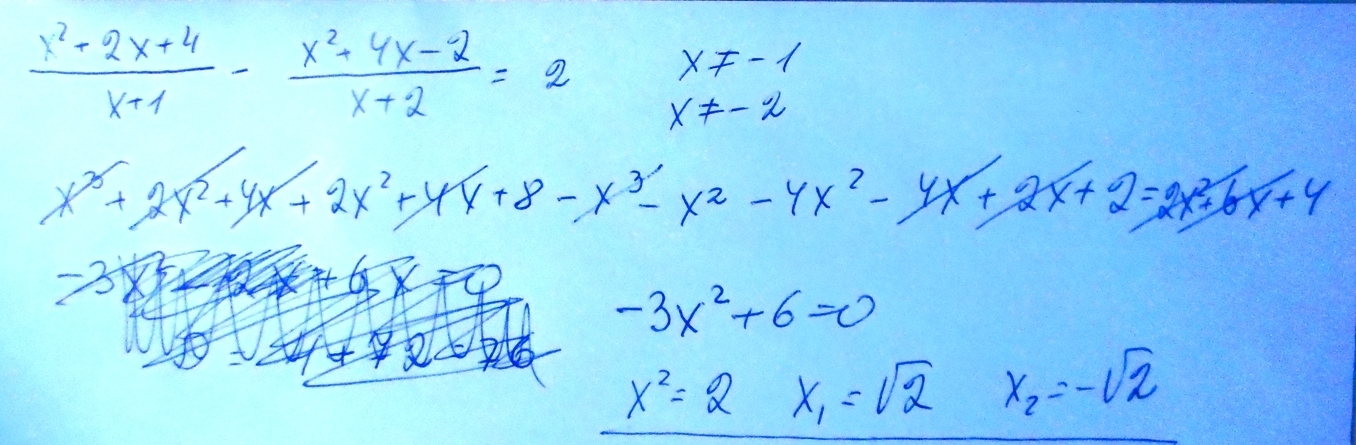 x²+2x+4 / x+1 - x²+4x-2 / x+2 = 2 x≠-1
x≠-2
x³+2x²+4x+2x²+4x+8-x³-x²-4x²-4x+2x+2=2x²+6x+4
-3x²+6=0
x²=2 x₁=√2 x₂=-√2